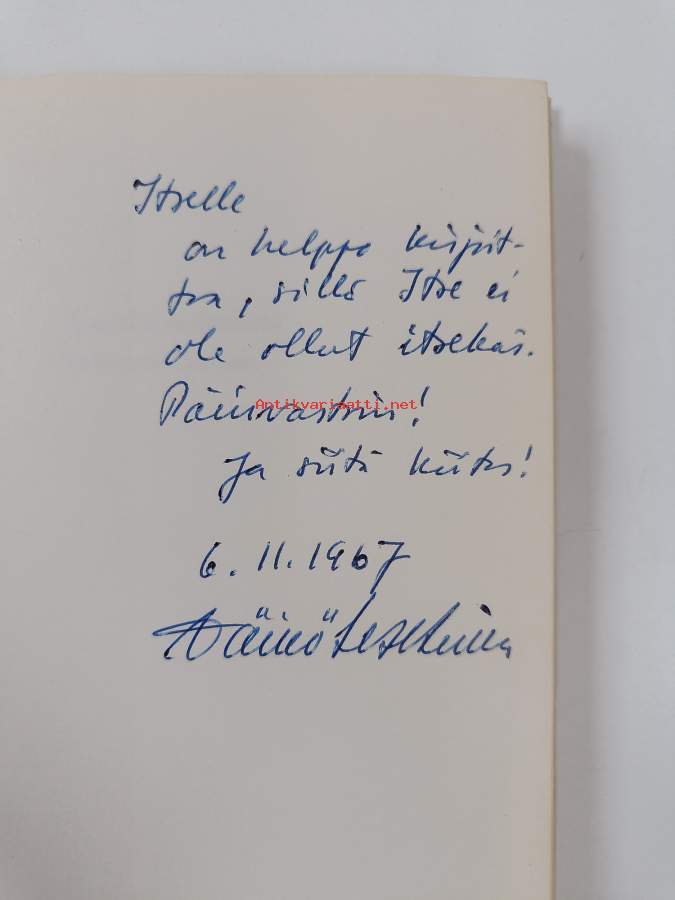 Itselle
on helppo kirjoit-
taa, sillä Itse ei
ole ollut itsekäs.
Päinvastoin!
Antikvariaatti.net
Ja siitä kiitos!
6.11.1967
Väinö